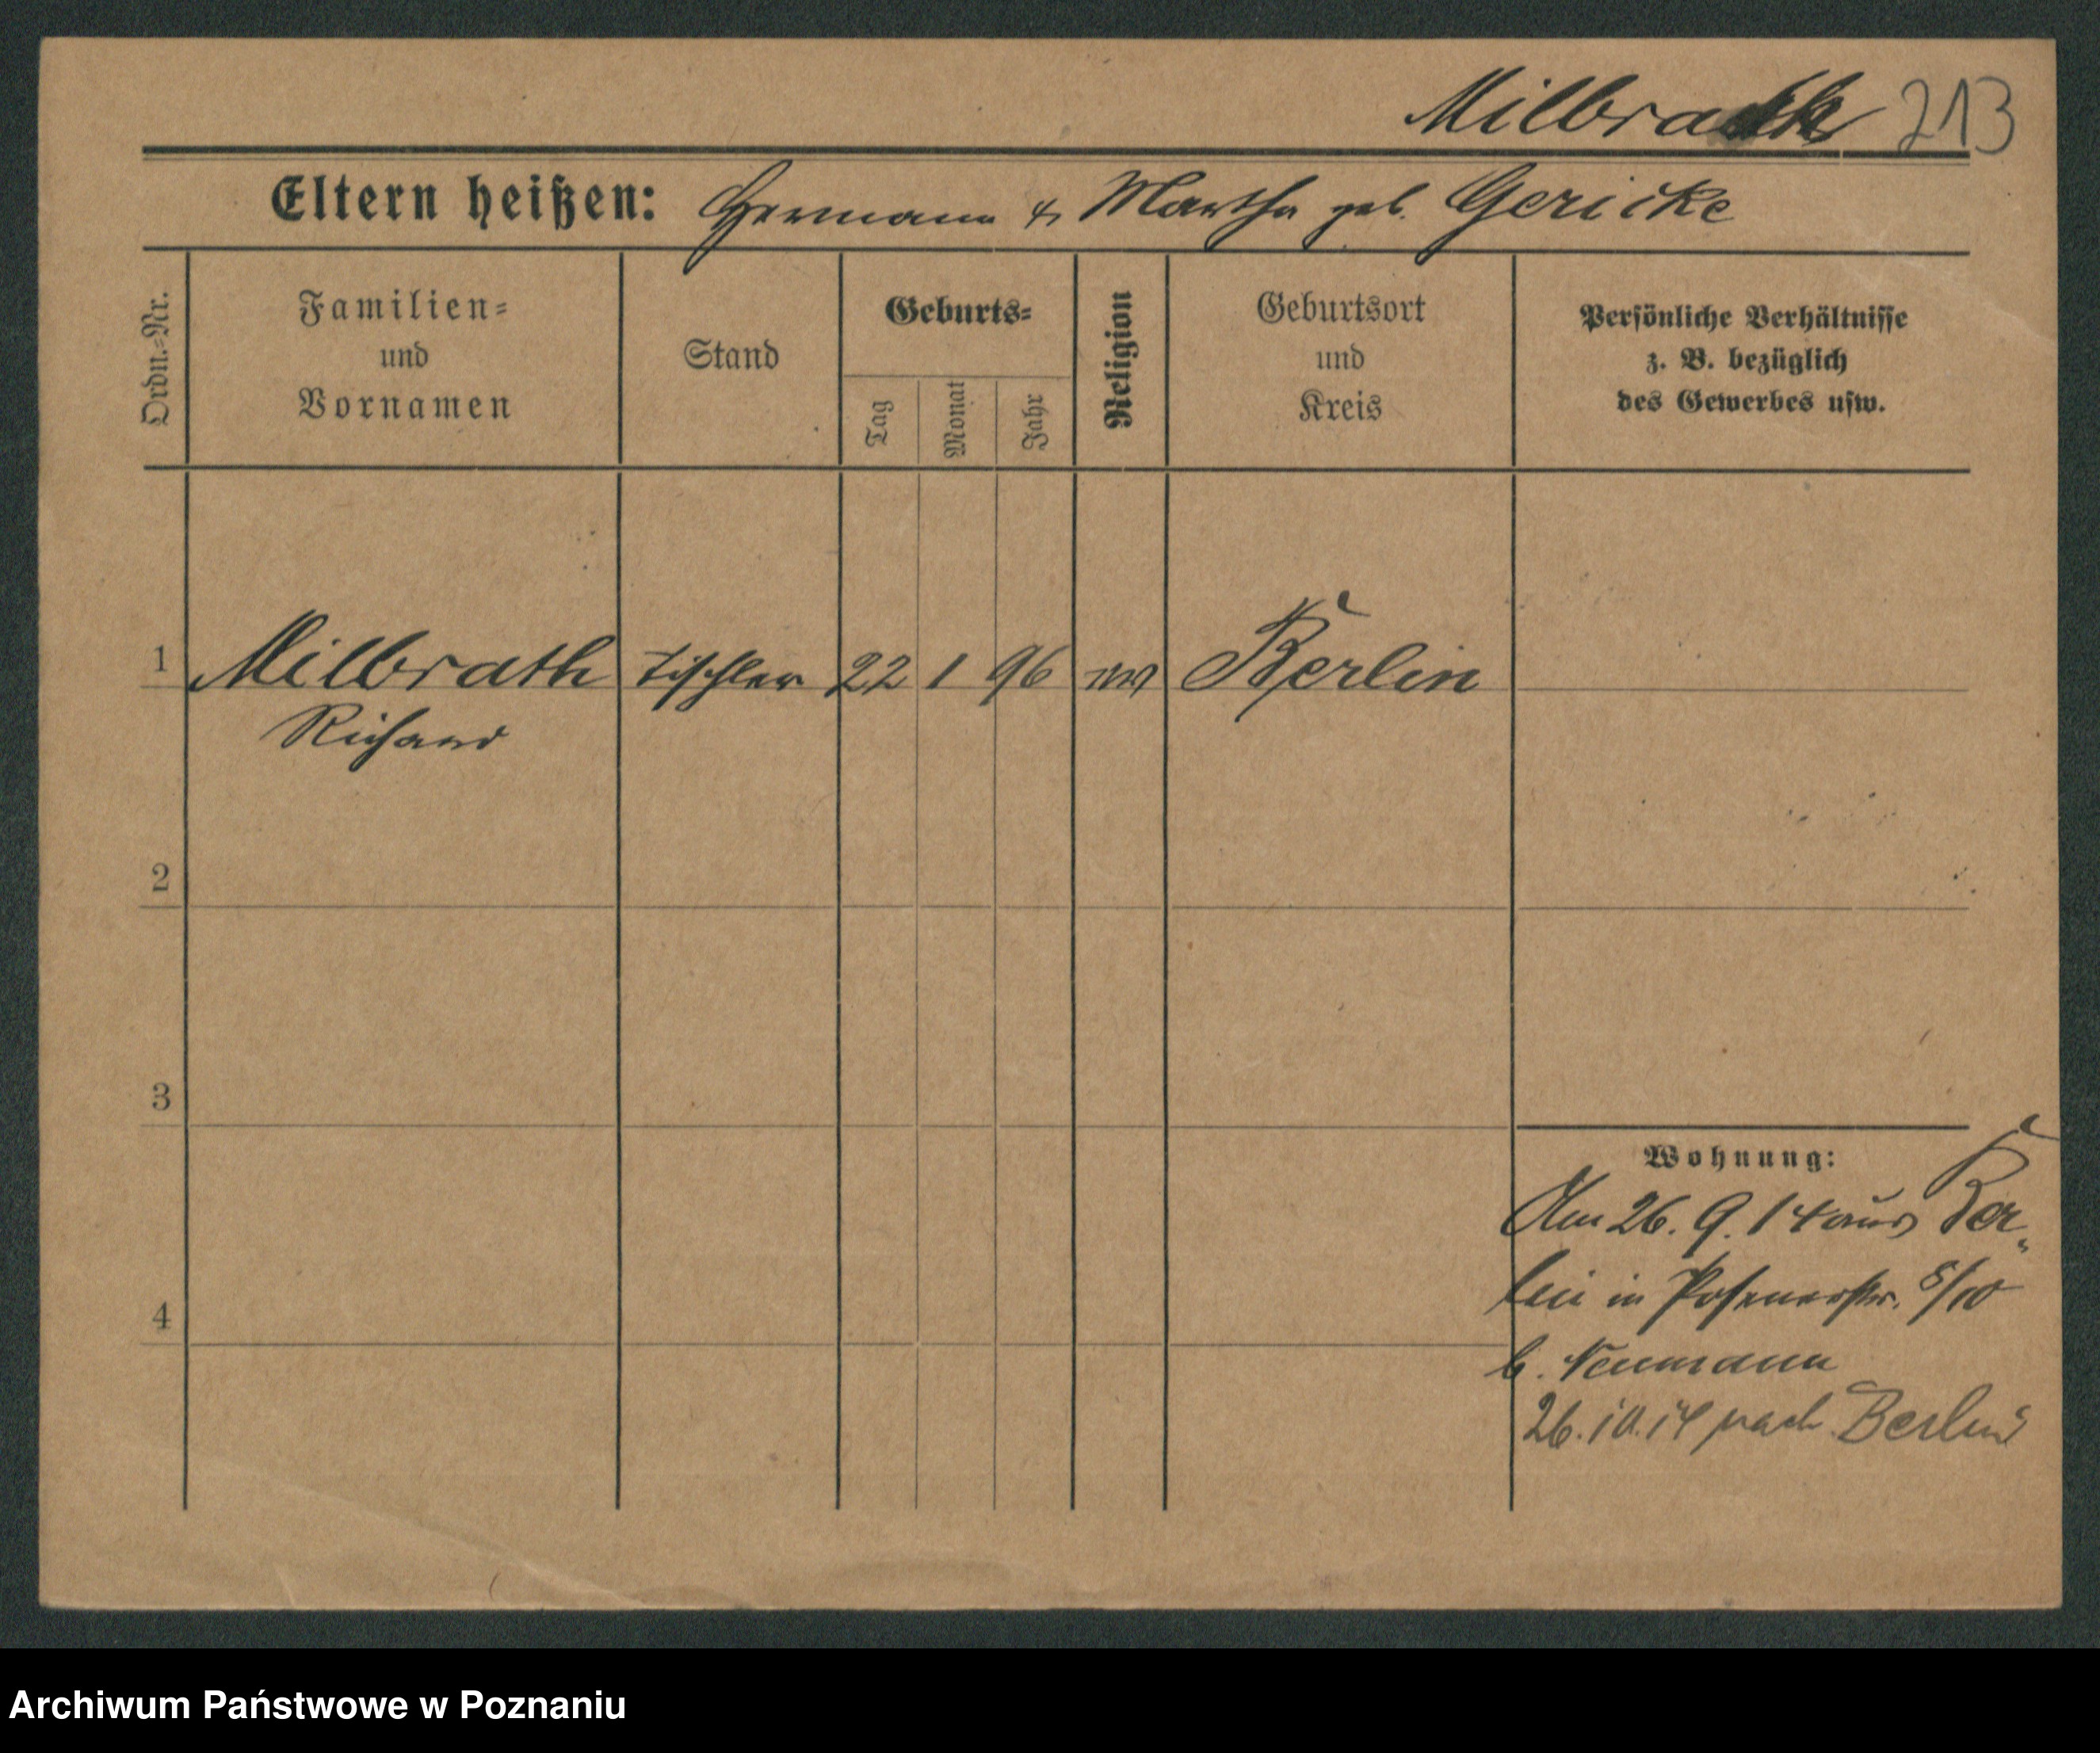 Milbrath 213
Eltern heißen: Hermann & Martha geb. Gericke
Ordn.=Nr.
Familien=
und
Vornamen
Stand
Geburts=
Tag
Monat
Jahr
Religion
Geburtsort
und
Kreis
Persönliche Verhältnisse
z. B. bezüglich
des Gewerbes usw.
1 Milbrath Tischler 22 1 96 ev Berlin
Richard
2
3
4
Wohnung:
Am 26. 9. 14 aus Ber-
lin in Posenerstr. 8/10
b. Neumann
26.10.14 nach Berlin
Archiwum Państwowe w Poznaniu